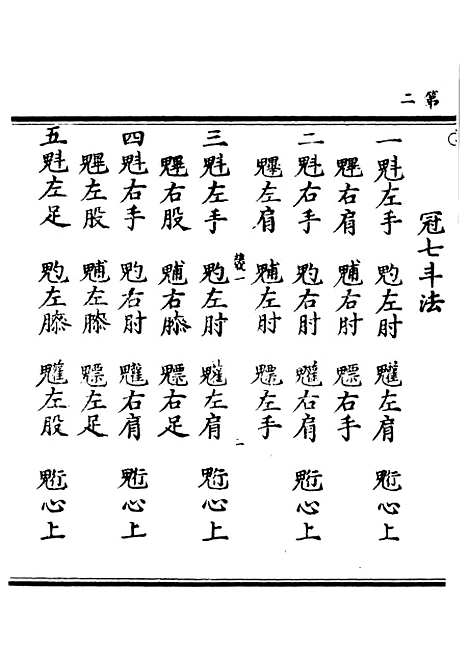 第二
冠七斗法
一魁左手 左肘 左肩 心上
魓右肩 右肘 魒右手
二魁右手 右肘 右肩 心上
魓左肩 左肘 魒左手
二
三魁左手 左肘 左肩 心上
魓右股 右膝 魒右足
四魁右手 右肘 右肩 心上
魓左股 左膝 魒左足
五魁左足 左膝 左股 心上